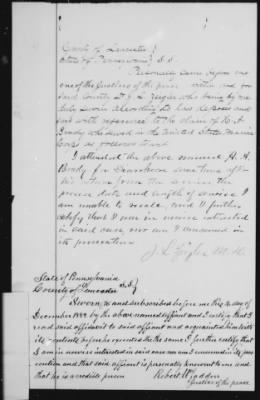 County of Lancaster }
State of Pennsylvania } S.S.
Personally came before me
one of the Justices of the peace within and for
said County Dr J. L. Ziegler who being by me
duly sworn according to law deposes and
says with reference to the claim of H. A.
Brady who served in the United States Marine
Corps as follows to wit
I attended the above named H. A.
Brady for Diarrhoea sometime after
his return from the service the
precise date and length of service I
am unable to recall, and I further
certify that I am in nowise interested
in said case, nor am I concerned in
its prosecution
J. L. Ziegler M. D.
State of Pennsylvania }
County of Lancaster } S.S.
Sworn to and subscribed before me this day of
December by the above named affiant and I certify that I
read said affidavit to said affiant and acquainted him with
its contents before he executed the same I further certify that
I am in nowise interested in said case nor am I concerned in its prose
cution and that said affiant is personally known to me and
that he is a credible person
Robert
Justice of the peace